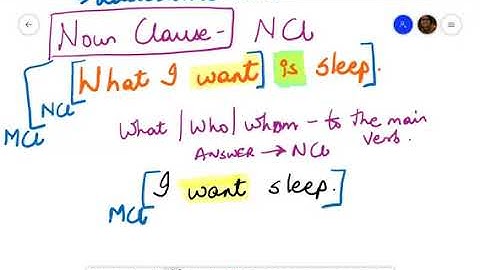 Noun Clause- NCl
[What I want is sleep].
NCl
MCl
What | Who | Whom - to the main verb.
ANSWER → NCl
[I want sleep.]
MCl